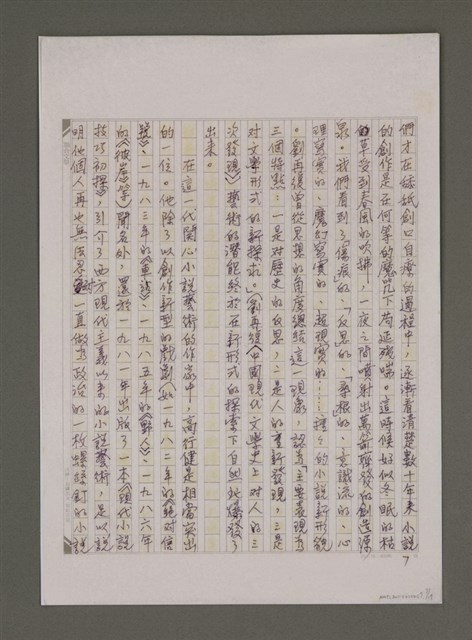 們才在舔舐創口自療的過程中，逐漸看清楚數十年來小說
的創作是在何等的魔咒下苟延殘喘。這時候好似冬眠的枯
草受到春風的吹拂，一夜之間噴射出萬箭齊發的創造潛
泉。我們看到了「傷痕」的、「反思」的、「尋根」的、意識流的、心
理寫實的、魔幻寫實的、超現實的……種種的小說新形貌
。劉再復曾從思想的角度總結這一現象，認為「主要表現為
三個特點：一是對歷史的反思，二是人的重新發現，三是
對文學形式的新探求。」（劉再復《中國現代文學史上對人的三
次發現》）藝術的潛能終於在新形式的探索下自然地爆發了
出來。
在這一代關心小說藝術的作家中，高行健是相當突出
的一位。他除了以創作新型的戲劇（如一九八二年的《絕對信
號》、一九八三年的《車站》、一九八五年的《野人》、一九八六年
的《彼岸》等）聞名外，還於一九八一年出版了一本《現代小說
技巧初探》，引介了西方現代主義以來的小說藝術，足以說
明他個人再也無法忍一直做為政治的一枚螺絲釘的小說
7